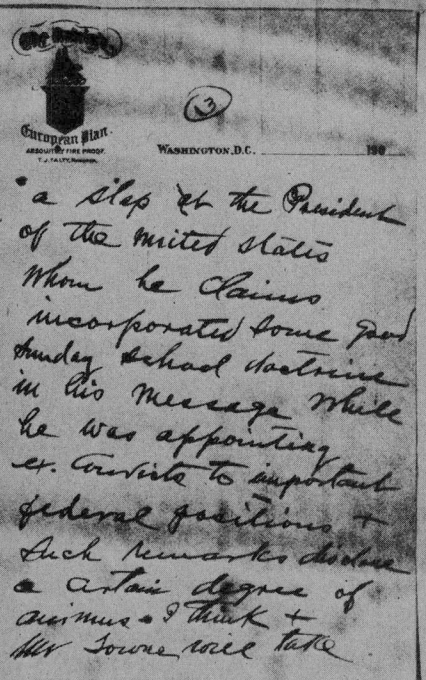 The Raleigh
European Plan.
ABSOLUTELY FIRE PROOF.
T.J. TALTY, MANAGER.
13
WASHINGTON, D.C. 190
"a slap at the President
of the United States
Whom he claims
incorporated some good
Sunday school doctrine
in his message while
he was appointing
ex. convicts to important
federal positions +
such remarks disclose
a certain degree of
animus. I think +
Mr Towne will take